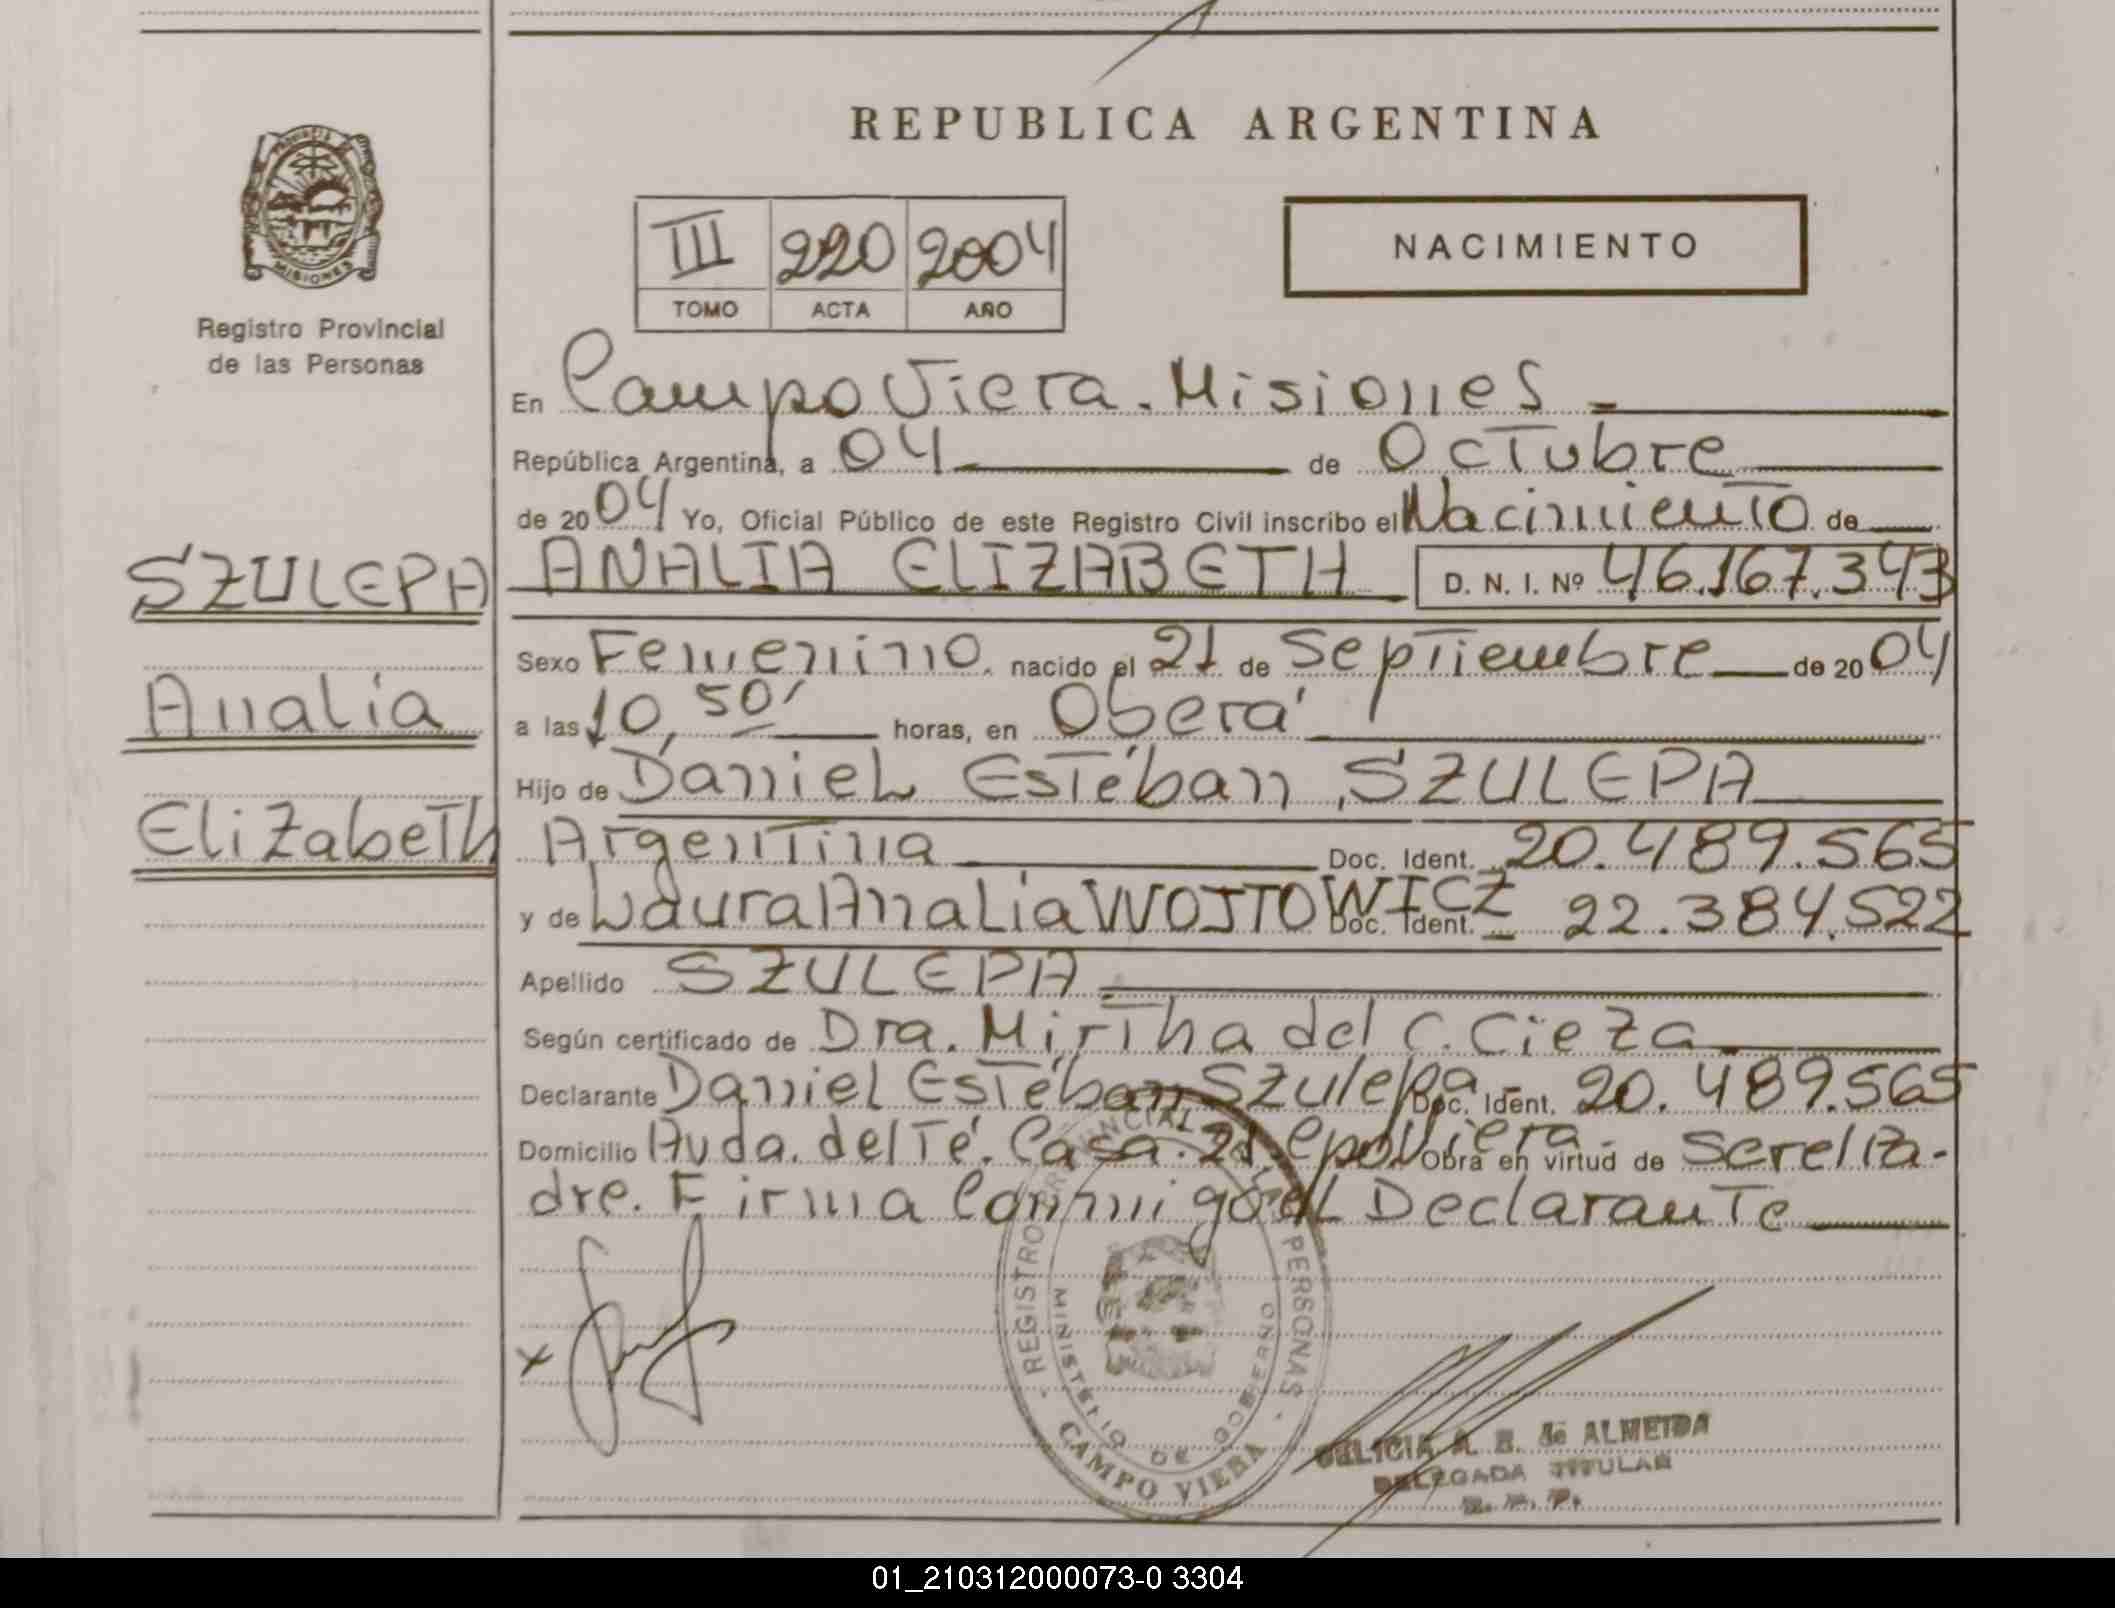 REPUBLICA ARGENTINA
PROVINCIA
MISIONES
Registro Provincial
de las Personas
III 220 2004
TOMO ACTA AÑO
NACIMIENTO
En Campo Viera. Misiones
República Argentina, a 04 de Octubre
de 2004 Yo, Oficial Público de este Registro Civil inscribo el Nacimiento de
SZULEPA
Analia
Elizabeth
ANALIA ELIZABETH D. N. I. Nº 46.167.343
Sexo Femenino. nacido el 21 de Septiembre de 2004
a las 10,50' horas, en Oberá
Hijo de Daniel Estéban SZULEPA
Argentina Doc. Ident. 20.489.565
y de Laura Analia WOJTOWICZ Doc. Ident. 22.384.522
Apellido SZULEPA
Según certificado de Dra. Mirtha del C. Cieza
Declarante Daniel Estéban Szulepa Doc. Ident. 20.489.565
Domicilio Avda. del Té. Casa. 21. Cpo. Viera Obra en virtud de Ser el Pa-
dre. Firma Conmigo el Declarante
REGISTRO PROVINCIAL PERSONAS
MINISTERIO DE GOBIERNO
CAMPO VIERA
x
A. de ALMEIDA
DELEGADA TITULAR
01_210312000073-0 3304